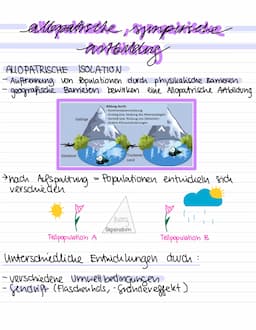 allopatrische, sympatrische
artbildung
ALLOPATRISCHE ISOLATION
- Auftrennung von Populationen durch physikalische Barrieren
geografische Barrieren bewirken eine Allopatrische Artbildung
Gebirge
→ nach Aufspaltung = Populationen entwickeln sich
verschieden
Separation
Teilpopulation A
Teilpopulation B
Unterschiedliche Entwicklungen durch :
- verschiedene Umweltbedingungen
- Gendrift (Flaschenhals, -Gründereffekt)